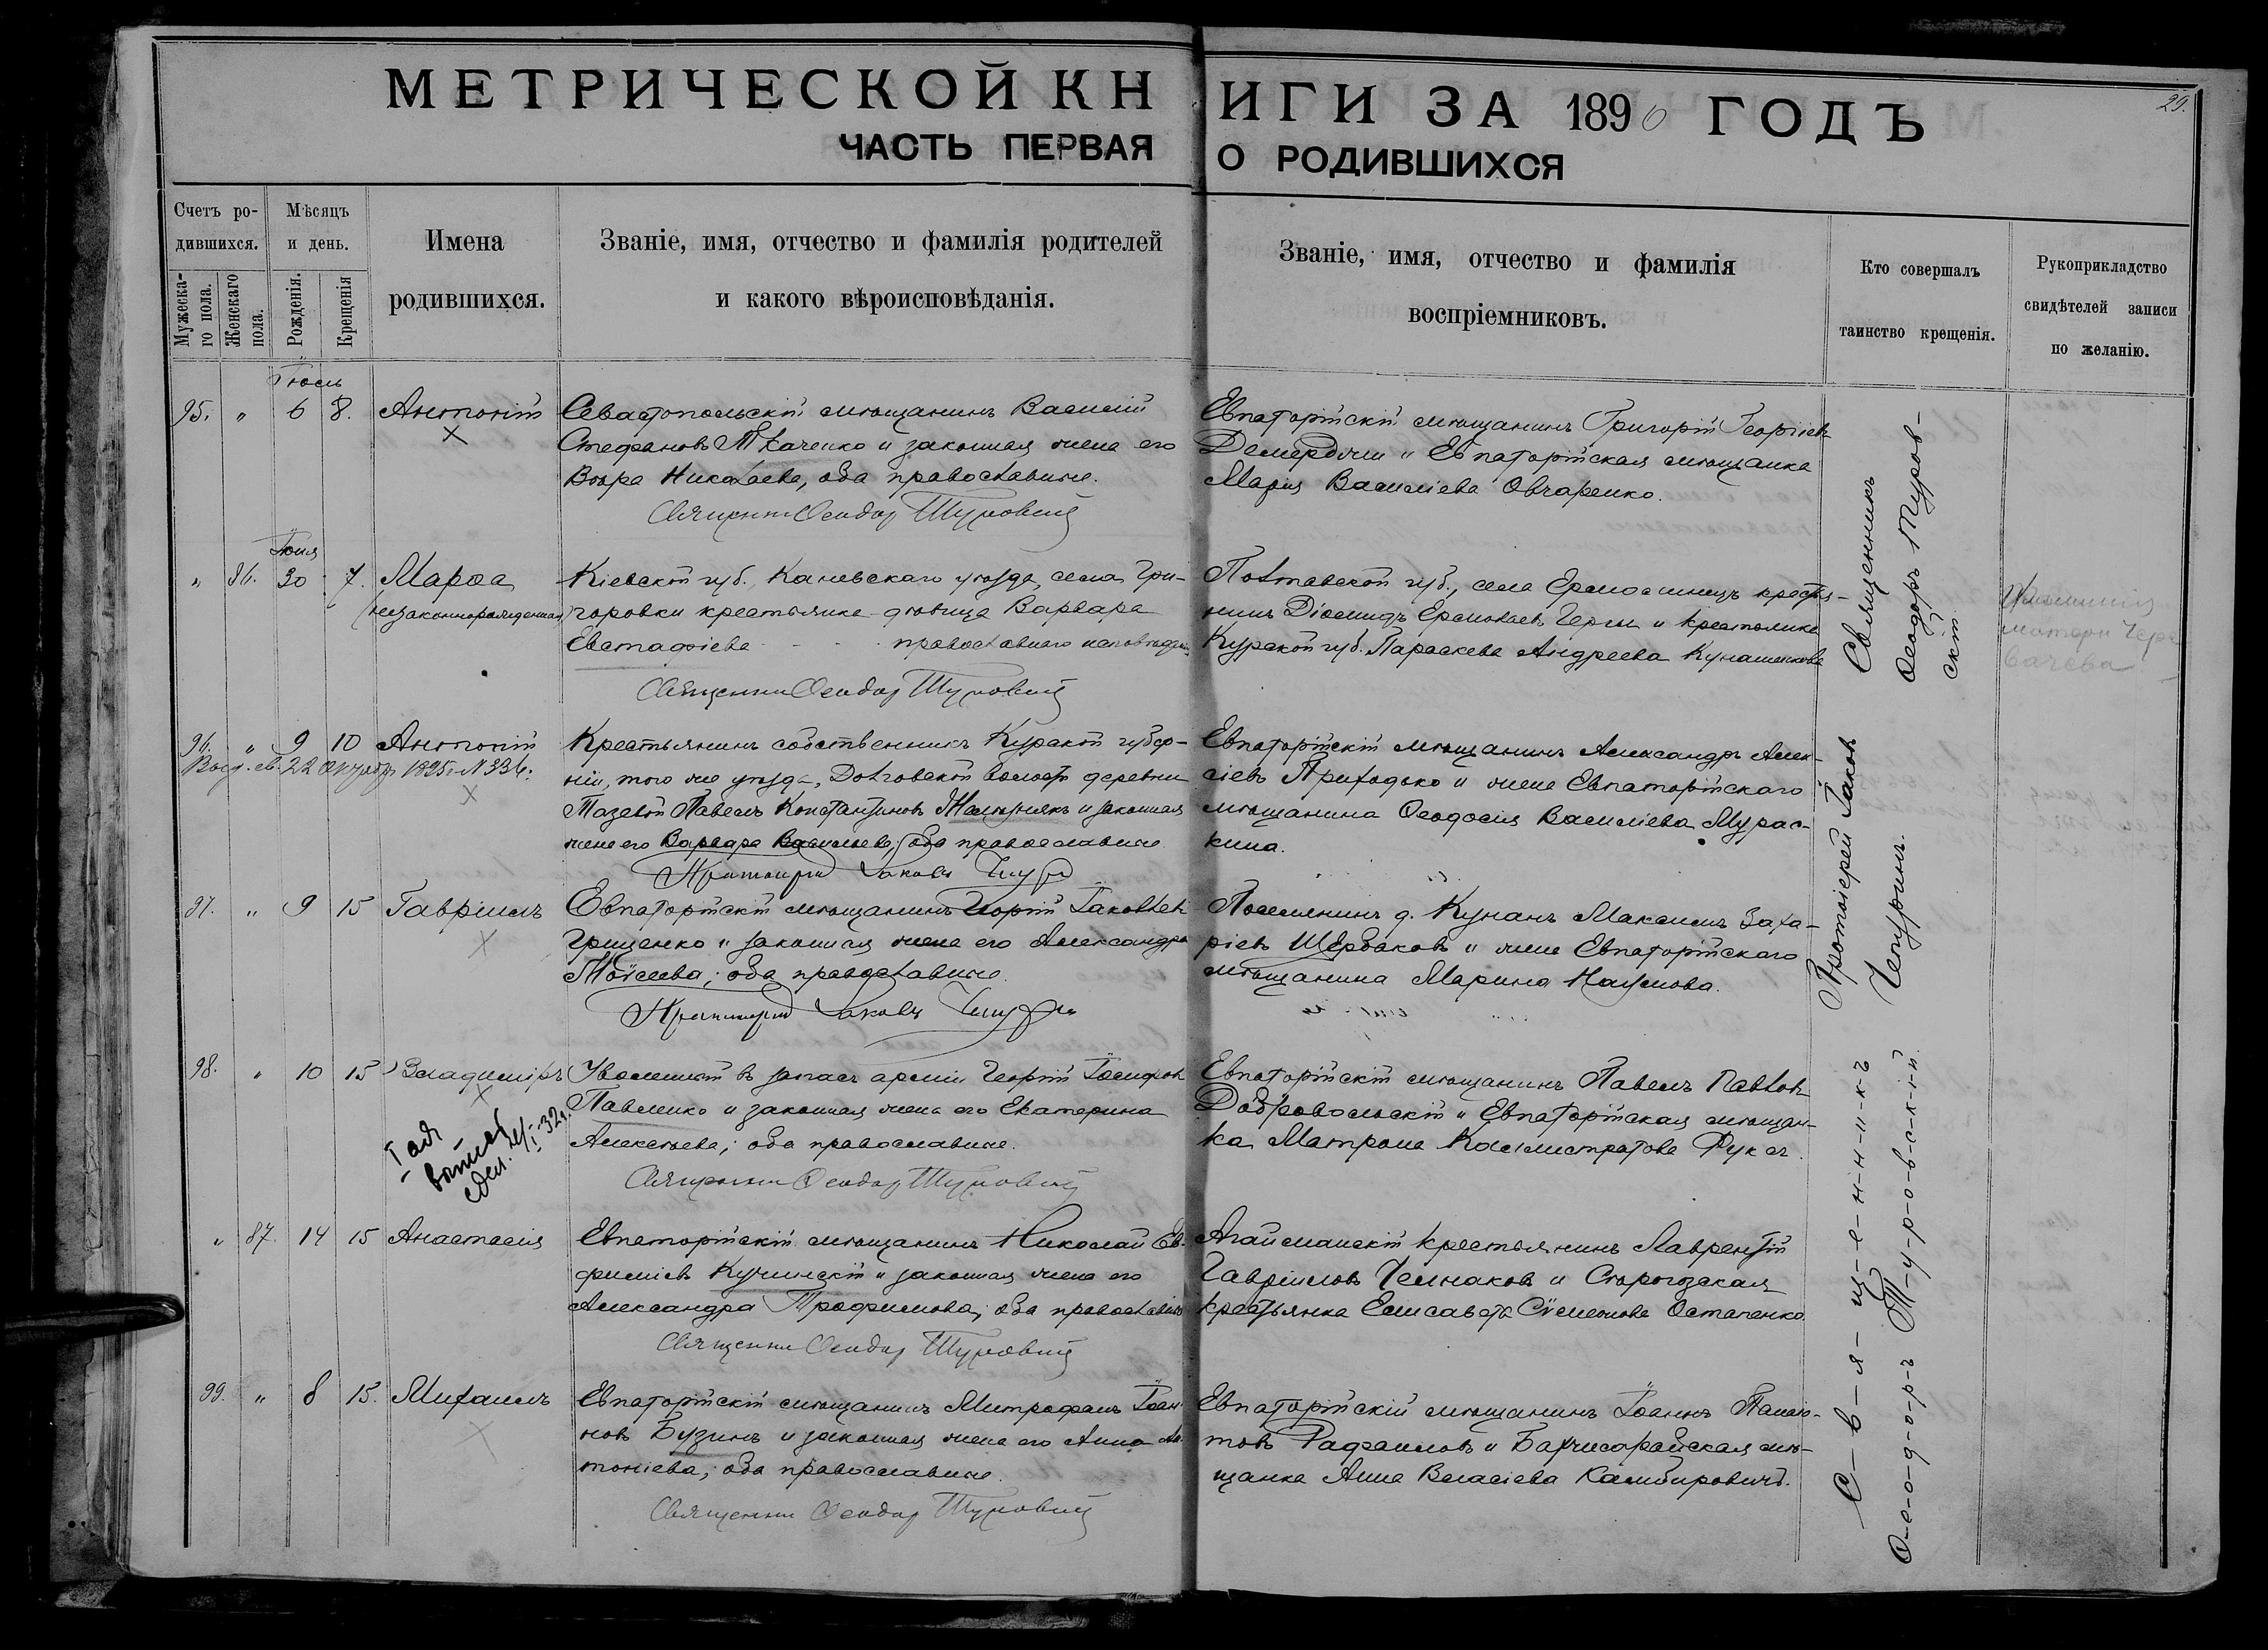 МЕТРИЧЕСКОЙ КНИГИ ЗА 1890 ГОДЪ
29.
ЧАСТЬ ПЕРВАЯ О РОДИВШИХСЯ
Счетъ родившихся.
Мужеска-
го пола.
Женскаго
пола.
Мѣсяцъ
и день.
Рожденія.
Крещенія
Имена
родившихся.
Званіе, имя, отчество и фамилія родителей
и какого вѣроисповѣданія.
Званіе, имя, отчество и фамилія
воспріемниковъ.
Кто совершалъ
таинство крещенія.
Рукоприкладство
свидѣтелей записи
по желанію.
Іюль
95. " 6 8. Антоній
Севастопольскій мѣщанинъ Василій
Стефановъ Ткаченко и законная жена его
Вѣра Николаева, оба православные.
Священникъ Ѳеодоръ Туровскій
Евпаторійскій мѣщанинъ Григорій Георгіевъ
Демерджи и Евпаторійская мѣщанка
Марія Василіева Овчаренко.
Священникъ
Ѳеодоръ Туров-
скій
Іюня
" 86. 30 7. Марѳа
(незаконнорожденная)
Кіевской губ. Каневскаго уѣзда, села Гри-
горовки крестьянка дѣвица Варвара
Евстафіева православнаго исповѣдан.
Священникъ Ѳеодоръ Туровскій
Полтавской губ., села крестья-
нинъ Діомидъ и крестьянка
Курской губ. Параскева Андреева
Фамилія
матери
96. " 9 10 Антоній
22 Октября 1895 г. № 334.
Крестьянинъ собственникъ Курской губер-
ніи, того же уѣзда, Долговской волости деревни
Мазевой Павелъ Константиновъ и законная
жена его Варвара Васильева; оба православные
Протоіерей Іаковъ Чепуринъ
Евпаторійскій мѣщанинъ Александръ Алек-
сіевъ Приходько и жена Евпаторійскаго
мѣщанина Ѳеодосія Василіева Мурас-
кина.
Протоіерей Іаковъ
Чепуринъ.
97. " 9 15 Гавріилъ
Евпаторійскій мѣщанинъ Георгій Іаковлев
Грищенко и законная жена его Александра
Моѵсеева; оба православные.
Протоіерей Іаковъ Чепуринъ
Поселянинъ д. Кунанъ Максимъ Заха-
ріевъ Щербаковъ и жена Евпаторійскаго
мѣщанина Марина Наумова.
98. " 10 15 Владиміръ
Уволенный въ запасъ арміи Георгій Іосифовъ
Павленко и законная жена его Екатерина
Алексѣева; оба православные.
Священникъ Ѳеодоръ Туровскій
Евпаторійскій мѣщанинъ Павелъ Павловъ
Добровольскій и Евпаторійская мѣщан-
ка Матрона Каллистратова Фуксъ.
С-в-я-щ-е-н-н-и-к-ъ
Ѳ-е-о-д-о-р-ъ Т-у-р-о-в-с-к-і-й.
" 87. 14 15 Анастасія
Евпаторійскій мѣщанинъ Николай Ев-
фиміевъ Кучинскій и законная жена его
Александра Трофимова; оба православн.
Священникъ Ѳеодоръ Туровскій
Агайманскій крестьянинъ Лаврентій
Гавріиловъ Челнаковъ и Старогозская
крестьянка Елисавета Сѵмеонова Остаченко.
99. " 8 15. Михаилъ
Евпаторійскій мѣщанинъ Митрофанъ Іоан-
новъ Бузинъ и законная жена его Анна Ан-
тоніева; оба православные.
Священникъ Ѳеодоръ Туровскій
Евпаторійскій мѣщанинъ Іоаннъ Панаіо-
товъ Рафаиловъ и Бахчисарайская мѣ-
щанка Анна Власіева Камбировичъ.